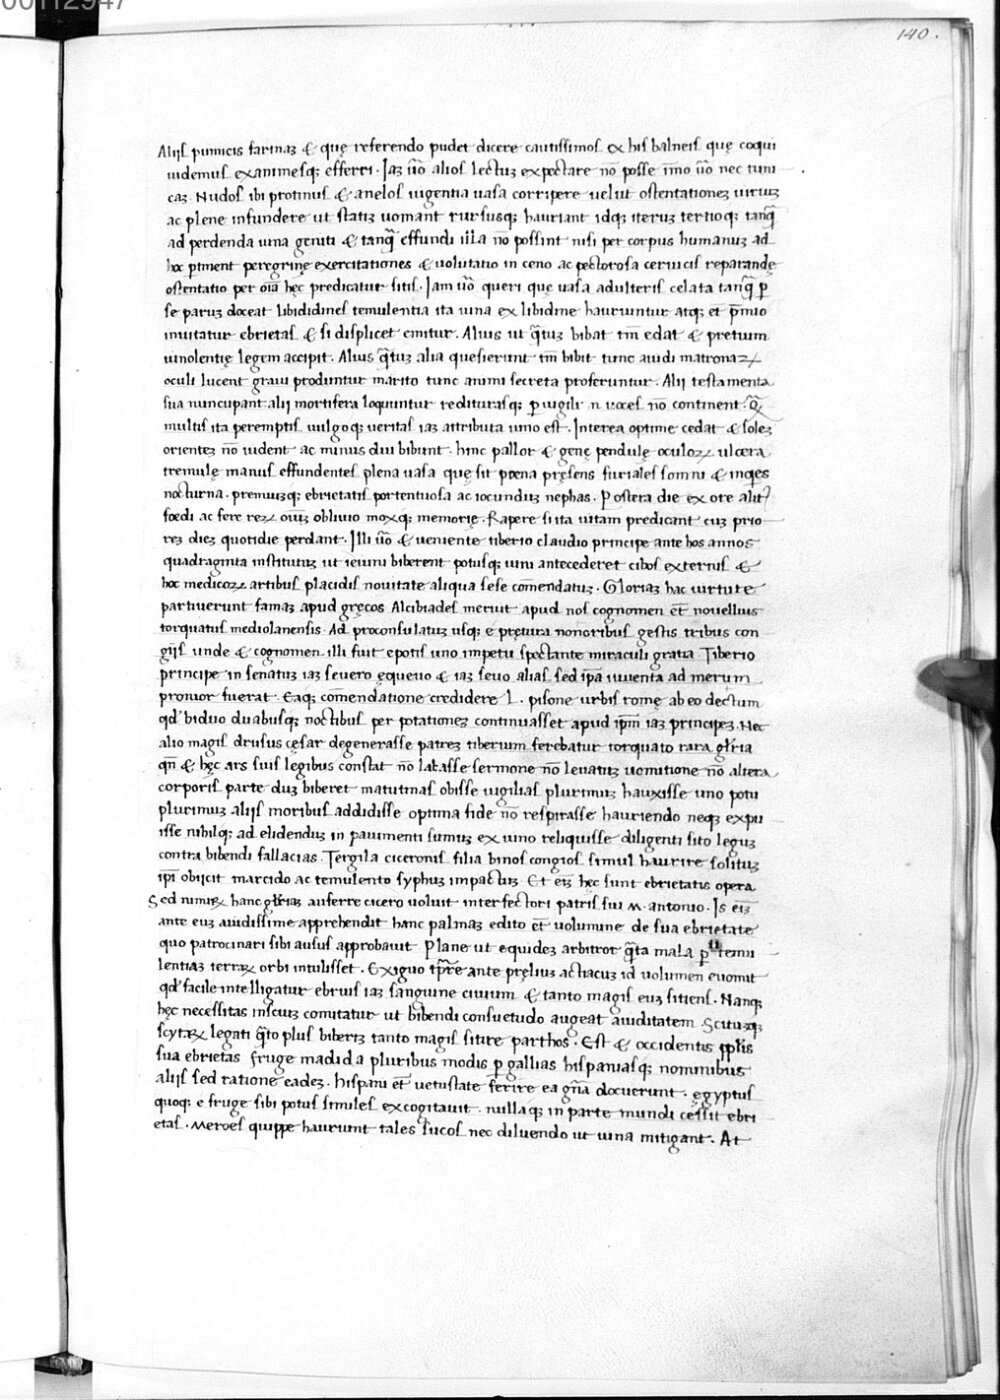 00112947
140.
Alijs pumicis farinaʒ & quę referendo pudet dicere cautissimos ex his balneis quę coqui
uidemus exanimesqꝫ efferri. Iaʒ ūo alios lectuʒ expectare nō posse īmo ūo nec tuni
caʒ. Nudos ibi protinus & anelos uigentia uasa corripere uelut ostentationeʒ uiriuʒ
ac plene infundere ut statiʒ uomant rursusqꝫ hauriant idqꝫ iteruʒ tertioqꝫ tanq̄
ad perdenda uina geniti & tanq̄ effundi illa nō possint nisi per corpus humanuʒ ad
hoc ꝑtinent peregrinę exercitationes & uolutatio in ceno ac pectorosa ceruicis reparandę
ostentatio per oīa hęc predicatur sitis. Iam ūo queri quę uasa adulteris celata tanq̄ ꝑ
se paruʒ doceat libididines temulentia ita uina ex libidine hauriuntur atqꝫ et p̄mio
inuitatur ebrietas & si displicet emitur. Alius ut q̄tuʒ bibat tm̄ edat & pretium
uinolentię legem accipit. Alius q̄tuʒ alia quesierunt tm̄ bibit tunc auidi matronaꝝ
oculi lucent graui produntur marito tunc animi secreta proferuntur. Alij testamenta
sua nuncupant alij mortifera loquuntur rediturasqꝫ ꝑ iugulū uoces nō continent.
multis ita peremptis uulgoqꝫ ueritas iaʒ attributa uino est. Interea optime cedat & soleʒ
orienteʒ nō uident ac minus diu bibunt. hinc pallor & genę pendulę oculoꝝ ulcera
tremulę manus effundentes plena uasa quę sit poena pręsens furiales somni & inqes
nocturna. premiuʒqꝫ ebrietatis portentuosa ac iocunduʒ nephas. Postera die ex ore alit
foedi ac fere reꝝ oīuʒ obliuio moxqꝫ memorię. Rapere si ita uitam predicant cuʒ prio
reʒ dieʒ quotidie perdant. Illi ūo & ueniente tiberio claudio principe ante hos annos
quadraginta institutuʒ ut ieiuni biberent potusqꝫ uini antecederet cibos externis &
hoc medicoꝝ artibus placidis nouitate aliqua sese comēdatuʒ. Gloriaʒ hac uirtute
partiuerunt famaʒ apud gręcos Alcibiades meruit apud nos cognomen et̄ nouellius
torquatus mediolanensis. Ad proconsulatuʒ usqꝫ e pretura nonoribus gestis tribus con
gijs unde & cognomen illi fuit epotis uno impetu spectante miraculi gratia Tiberio
principe in senatuʒ iaʒ seuero ęqueuo & iaʒ seuo alias sed ip̄a iuuenta ad merum
pronior fuerat. Eaqꝫ comēdatione credidere L. pisone urbis romę ab eo dectum
qd' biduo duabusqꝫ noctibus per potationeʒ continuasset apud ip̄m iaʒ principeʒ. Nec
alio magis drusus cęsar degenerasse patreʒ tiberium ferebatur torquato rara gl̄ria
qn̄ & hęc ars suis legibus constat nō labasse sermone nō leuatuʒ uomitione nō altera
corporis parte duʒ biberet matutinas obisse uigilias plurimuʒ hauxisse uno potu
plurimuʒ alijs moribus addidisse optima fide nō respirasse hauriendo neqꝫ expu
isse nihilqꝫ ad elidenduʒ in pauimenti sumuʒ ex uino reliquisse diligenti sito leguʒ
contra bibendi fallacias. Tergila ciceronis filia binos congios simul haurire solituʒ
ip̄i obijcit marcido ac temulento syphuʒ impactuʒ. Et eīʒ hęc sunt ebrietatis opera
Sed nimiꝝ hanc gl̄riaʒ auferre cicero uoluit interfectori patris sui M. antonio. Is eīʒ
ante euʒ auidissime apprehendit hanc palmaʒ edito et̄ uolumine de sua ebrietate
quo patrocinari sibi ausus approbauit Plane ut equideʒ arbitror q̄ta mala ꝑ temu
lentiaʒ terraꝝ orbi intulisset. Exiguo tp̄re ante pręliuʒ actiacuʒ id uolumen euomit
qd' facile intelligatur ebrius iaʒ sanguine ciuium & tanto magis euʒ sitiens. Nanqꝫ
hęc necessitas insciuʒ comitatur ut bibendi consuetudo augeat auiditatem Scituʒqꝫ
scytaꝝ legati q̄to plus biberʒ tanto magis sitire parthos. Est & occidentis pplis
sua ebrietas fruge madida pluribus modis ꝑ gallias hispaniasqꝫ nominibus
alijs sed ratione eadeʒ. hispani et̄ uetustate ferire ea gn̄a docuerunt. ęgyptus
quoqꝫ e fruge sibi potus similes excogitauit. nullaqꝫ in parte mundi cessit ebri
etas. Meroes quippe hauriunt tales sucos nec diluendo ut uina mitigant. At